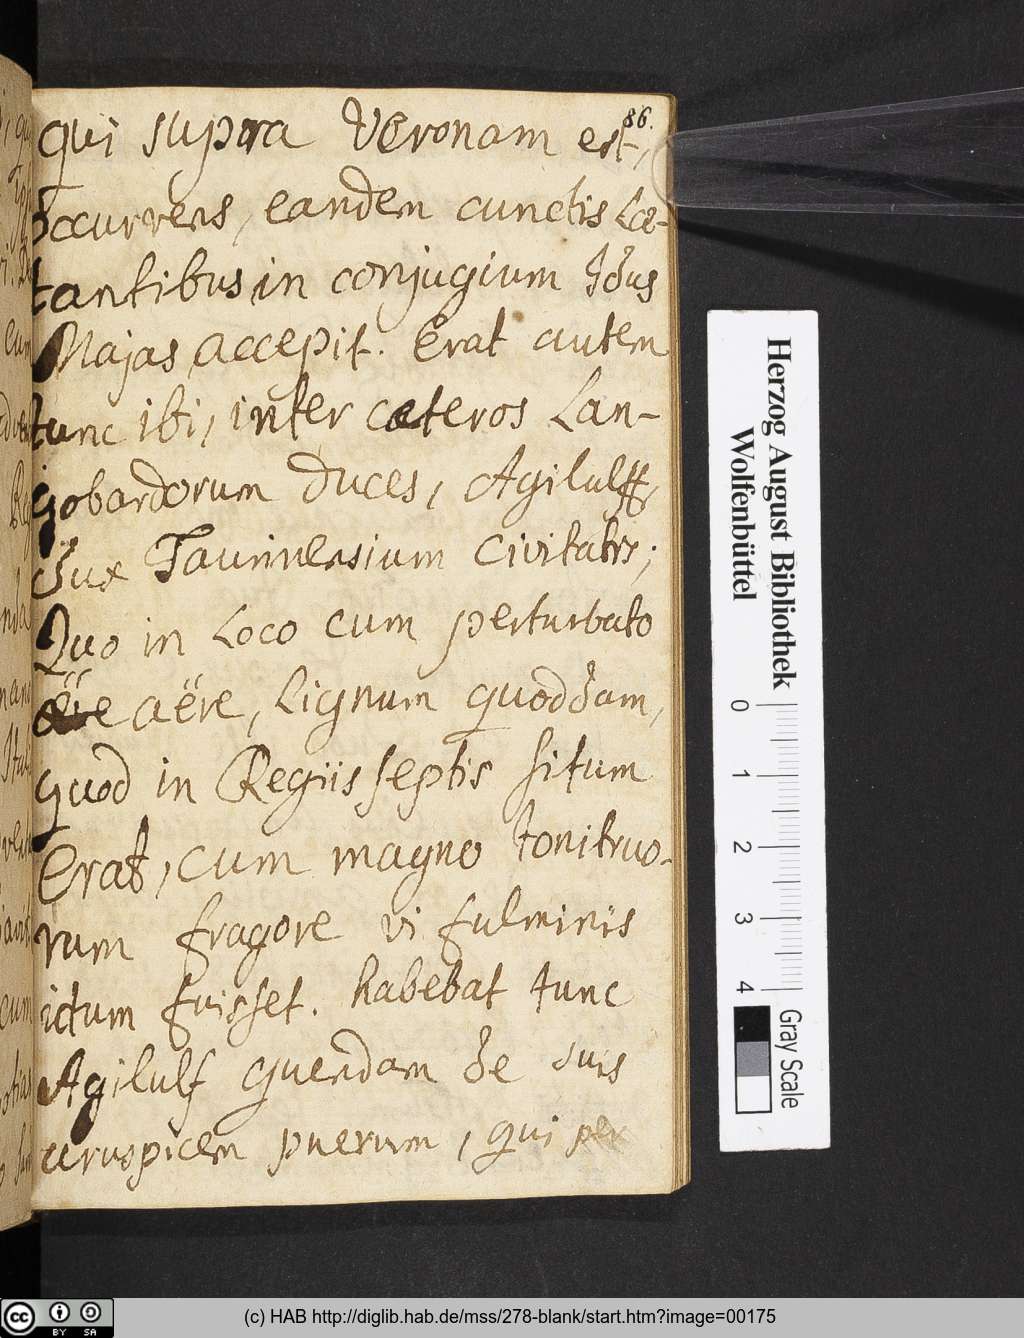 86.
qui supra Veronam est,
occurrens, eandem cunctis Læ-
tantibus, in conjugium Idus
Majas accepit. Erat autem
tunc ibi, inter cæteros Lan-
gobardorum duces, Agilulff,
Dux Taurinensium Civitatis;
Quo in Loco cum perturbato
aëre, Lignum quoddam,
quod in Regiis septis situm
Erat, cum magno tonitruo-
rum fragore vi fulminis
ictum fuisset. habebat tunc
Agilulf quendam de suis
aruspicem puerum, qui per
Herzog August Bibliothek
Wolfenbüttel
0 1 2 3 4
Gray Scale
cc BY SA
(c) HAB http://diglib.hab.de/mss/278-blank/start.htm?image=00175